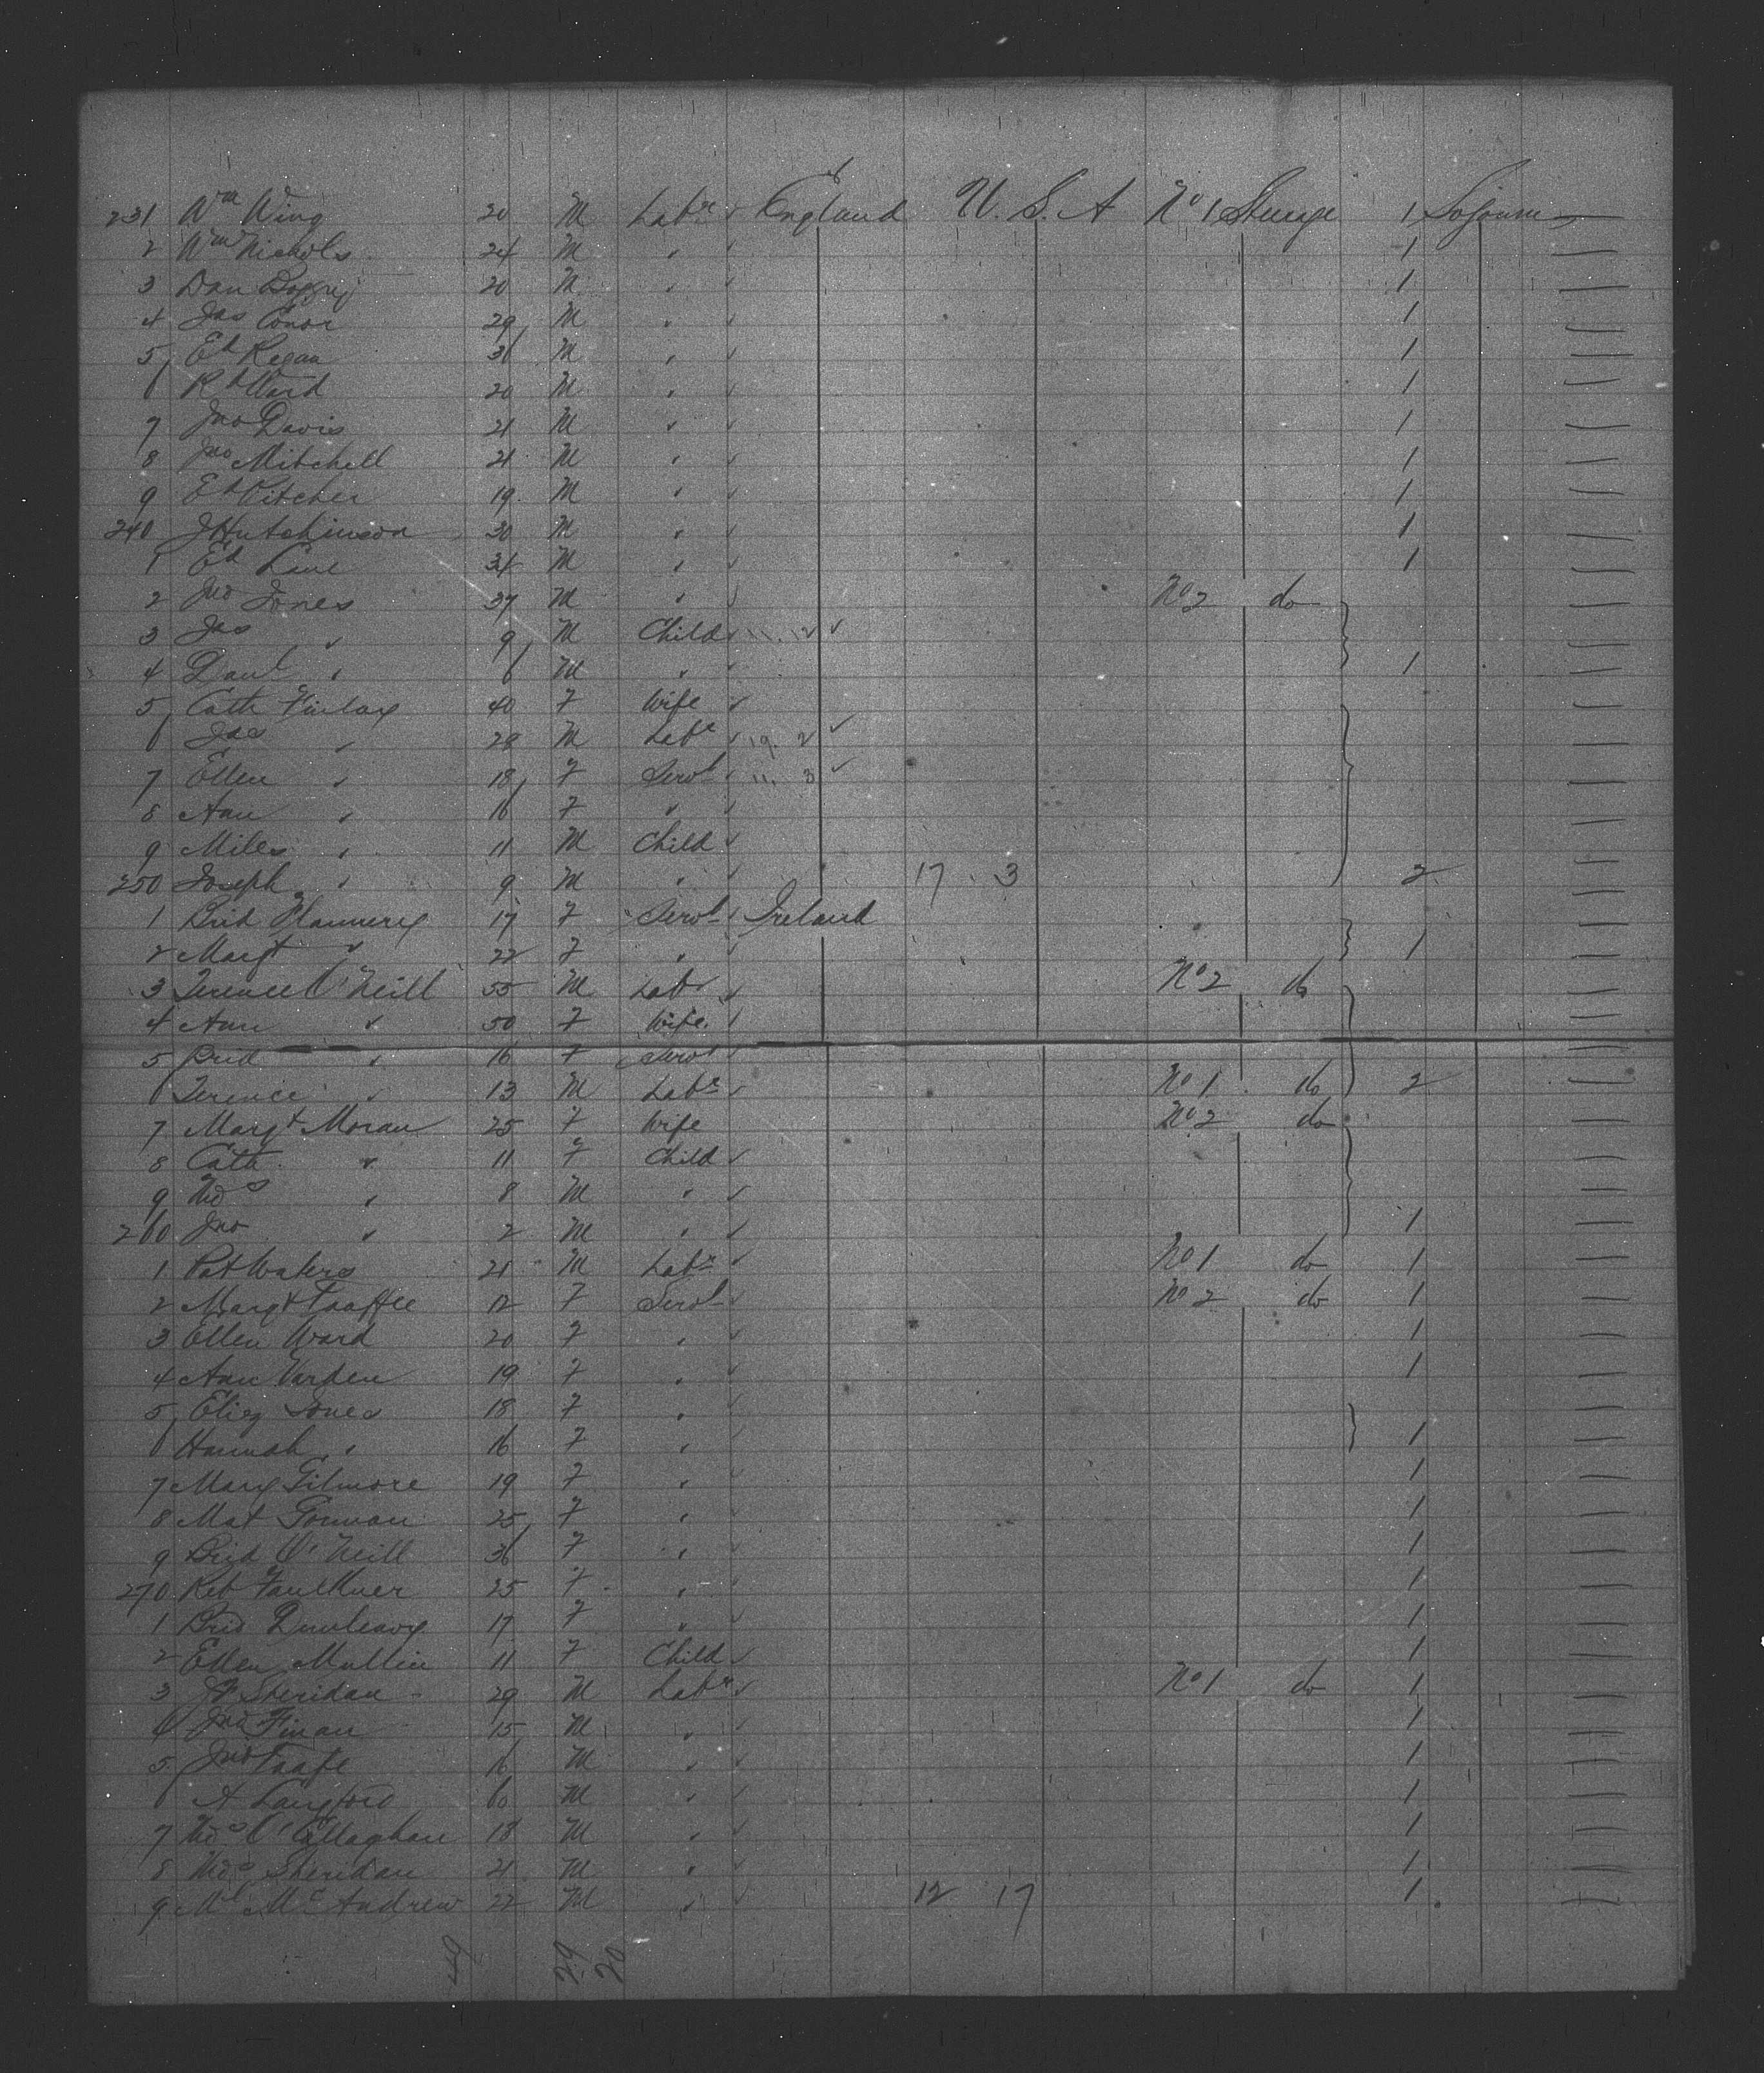 231 Wm Wing 20 M Labr ✓ England U. S. A No 1 Steerage 1 Sojourn —
2 Wm Nichols 24 M " ✓ 1 —
3 Dan 20 M " ✓ 1 —
4 Jas Conor 29 M " ✓ 1 —
5 Ed Regan 36 M " ✓ 1 —
6 Rd Ward 20 M " ✓ 1 —
7 Jno Davis 21 M " ✓ 1 —
8 Jno Mitchell 21 M " ✓ 1 —
9 Ed Pitcher 19 M " ✓ 1 —
240 J Hutchinson 30 M " ✓ 1 —
1 Ed Lane 31 M " ✓ 1 —
2 Jno Jones 37 M " ✓ No 2 do —
3 Jas " 9 M Child ✓ 11. 2 ✓ —
4 Danl " 6 M " ✓ 1 —
5 Cath Finlay 40 F Wife ✓ —
6 Jas " 28 M Labr ✓ 19. 2 ✓ —
7 Ellen " 18 F Servt ✓ 11. 3 ✓ —
8 Ann " 16 F " ✓ —
9 Miles " 11 M Child ✓ —
250 Joseph " 9 M " ✓ 17 . 3 2 —
1 Brid Flannery 17 F Servt ✓ Ireland —
2 Margt " 22 F " ✓ 1 —
3 Terence O'Neill 55 M Labr ✓ No 2 do —
4 Ann " 50 F Wife ✓ —
5 Brid " 16 F Servt ✓ —
6 Terence " 13 M Labr ✓ No 1 do 2 —
7 Margt Moran 25 F Wife No 2 do —
8 Cath " 11 F Child ✓ —
9 Thos " 8 M " ✓ —
260 Jno " 2 M " ✓ 1 —
1 Pat Waters 21 M Labr ✓ No 1 do 1 —
2 Margt Taaffee 12 F Servt ✓ No 2 do 1 —
3 Ellen Ward 20 F " ✓ 1 —
4 Ann Varden 19 F " ✓ 1 —
5 Eliz Jones 18 F " ✓ —
6 Hannah " 16 F " ✓ 1 —
7 Mary Gilmore 19 F " ✓ 1 —
8 Mat 25 F " ✓ 1 —
9 Brid O'Neill 36 F " ✓ 1 —
270 Reb Faulkner 25 F " ✓ 1 —
1 Brid Dunleavy 17 F " ✓ 1 —
2 Ellen Mullin 11 F Child ✓ 1 —
3 Sheridan 29 M Labr ✓ No 1 do 1 —
4 Jno Finan 15 M " ✓ 1 —
5 Jno Taafe 16 M " ✓ 1 —
6 A Langford 60 M " ✓ 1 —
7 Thos O'Callaghan 18 M " ✓ 1 —
8 Thos Sheridan 21 M " ✓ 1 —
9 Ml McAndrew 22 M " ✓ 12 17 1 —
49 29 20